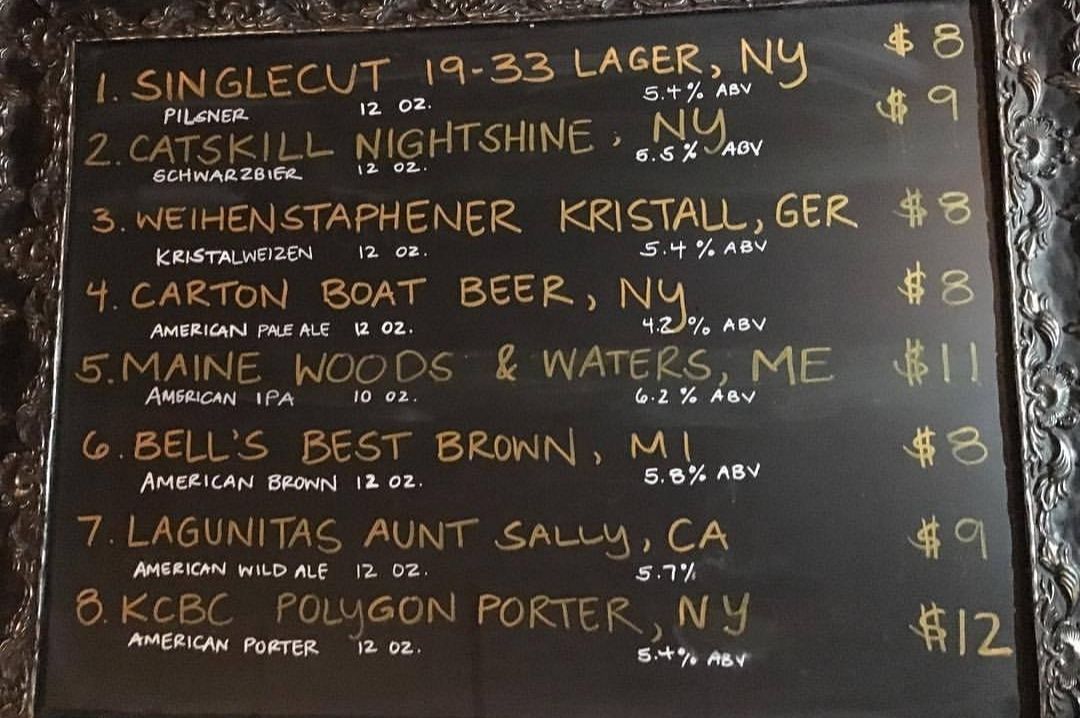 1. SINGLECUT 19-33 LAGER, NY $8
PILSNER 12 OZ. 5.4% ABV
2. CATSKILL NIGHTSHINE, NY $9
SCHWARZBIER 12 OZ. 5.5% ABV
3. WEIHENSTAPHENER KRISTALL, GER $8
KRISTALWEIZEN 12 OZ. 5.4% ABV
4. CARTON BOAT BEER, NY $8
AMERICAN PALE ALE 12 OZ. 4.2% ABV
5. MAINE WOODS & WATERS, ME $11
AMERICAN IPA 10 OZ. 6.2% ABV
6. BELL'S BEST BROWN, MI $8
AMERICAN BROWN 12 OZ. 5.8% ABV
7. LAGUNITAS AUNT SALLY, CA $9
AMERICAN WILD ALE 12 OZ. 5.7%
8. KCBC POLYGON PORTER, NY $12
AMERICAN PORTER 12 OZ. 5.4% ABV